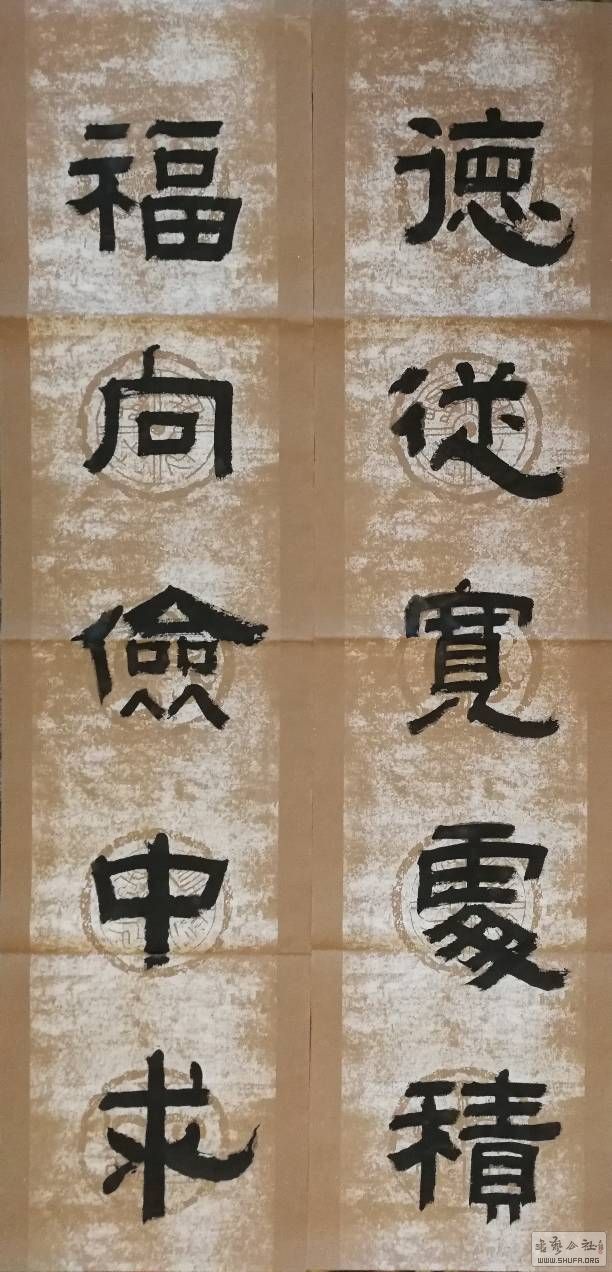 德從寬處積
福向儉中求
WWW.SHUFA.ORG